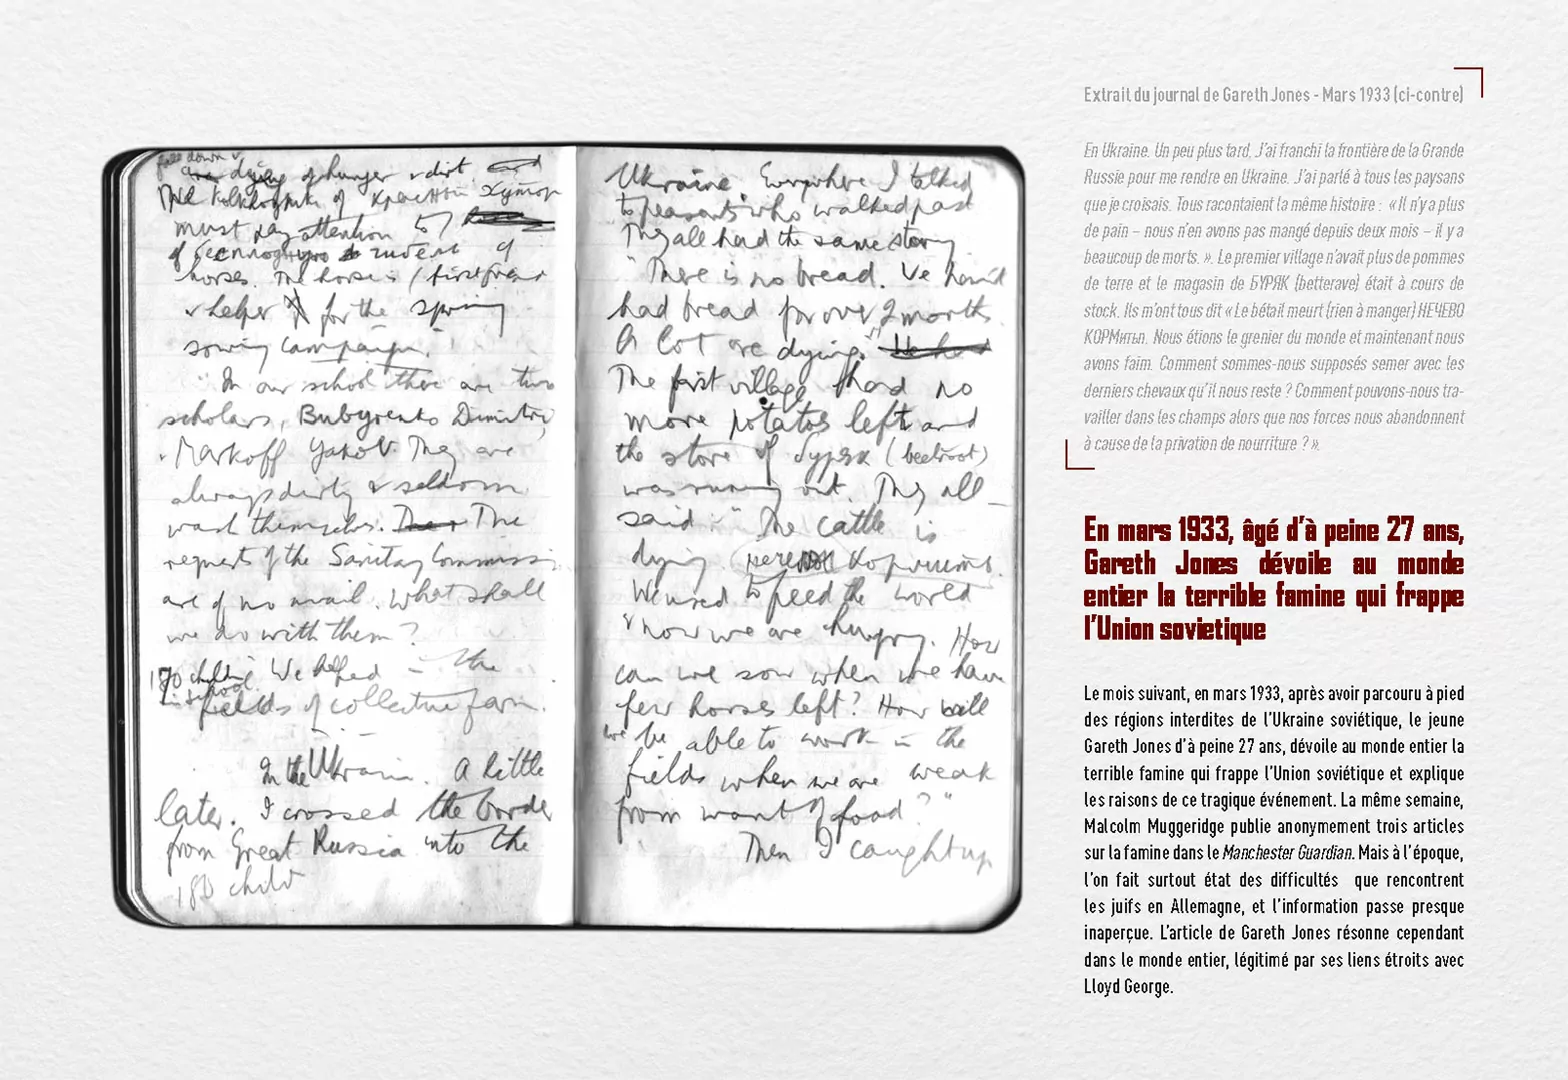 fall down &
are dying of hunger & dirt
The
must pay attention to
of
horses. The horse is
& helper for the spring
sowing campaign.
In our school there are two
scholars, Bubyrenko Dimitri,
Markoff Yakov. They are
always dirty & seldom
wash themselves. The
request of the Sanitary Commission
are of no avail. What shall
we do with them?
180 children We helped in the
in school
fields of collective farm.
In the Ukraine. A little
later. I crossed the border
from Great Russia into the
180 child
Ukraine. Everywhere I talked
to peasants who walked past
They all had the same story
"There is no bread. We haven't
had bread for over 2 months.
A lot are dying."
The first village had no
more potatoes left and
the store of буряк (beetroot)
was running out. They all
said: "The cattle is
dying
We used to feed the world
& now we are hungry. How
can we sow when we have
few horses left? How will
we be able to work in the
fields when we are weak
from want of food?"
Then I caught up
Extrait du journal de Gareth Jones - Mars 1933 (ci-contre)
En Ukraine. Un peu plus tard. J'ai franchi la frontière de la Grande
Russie pour me rendre en Ukraine. J'ai parlé à tous les paysans
que je croisais. Tous racontaient la même histoire : « Il n'y a plus
de pain – nous n'en avons pas mangé depuis deux mois – il y a
beaucoup de morts. ». Le premier village n'avait plus de pommes
de terre et le magasin de БУРЯК (betterave) était à cours de
stock. Ils m'ont tous dit « Le bétail meurt (rien à manger) НЕЧЕВО
КОРМить. Nous étions le grenier du monde et maintenant nous
avons faim. Comment sommes-nous supposés semer avec les
derniers chevaux qu'il nous reste ? Comment pouvons-nous tra-
vailler dans les champs alors que nos forces nous abandonnent
à cause de la privation de nourriture ? ».
En mars 1933, âgé d'à peine 27 ans,
Gareth Jones dévoile au monde
entier la terrible famine qui frappe
l'Union sovietique
Le mois suivant, en mars 1933, après avoir parcouru à pied
des régions interdites de l'Ukraine soviétique, le jeune
Gareth Jones d'à peine 27 ans, dévoile au monde entier la
terrible famine qui frappe l'Union soviétique et explique
les raisons de ce tragique événement. La même semaine,
Malcolm Muggeridge publie anonymement trois articles
sur la famine dans le Manchester Guardian. Mais à l'époque,
l'on fait surtout état des difficultés que rencontrent
les juifs en Allemagne, et l'information passe presque
inaperçue. L'article de Gareth Jones résonne cependant
dans le monde entier, légitimé par ses liens étroits avec
Lloyd George.